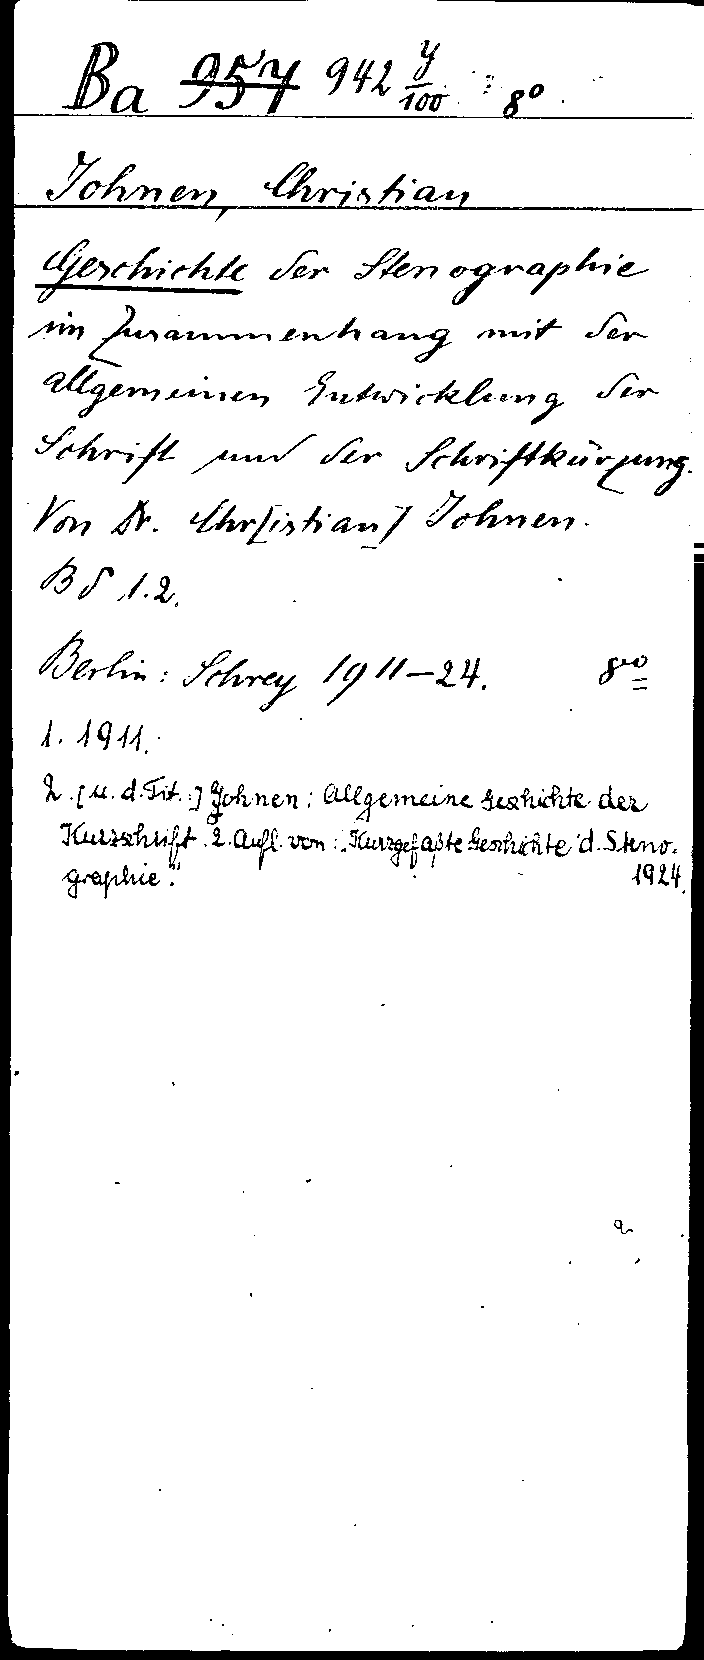 Ba 957 942 y/100 8°
Johnen, Christian
Geschichte der Stenographie
im Zusammenhang mit der
allgemeinen Entwicklung der
Schrift und der Schriftkürzung.
Von Dr. Chr[istian] Johnen.
Bd 1.2.
Berlin: Schrey 1911-24. 8vo
1. 1911.
2. [u. d. Tit.:] Johnen: Allgemeine Geschichte der
Kurzschrift. 2. Aufl. von: "Kurzgefaßte Geschichte d. Steno-
graphie." 1924.